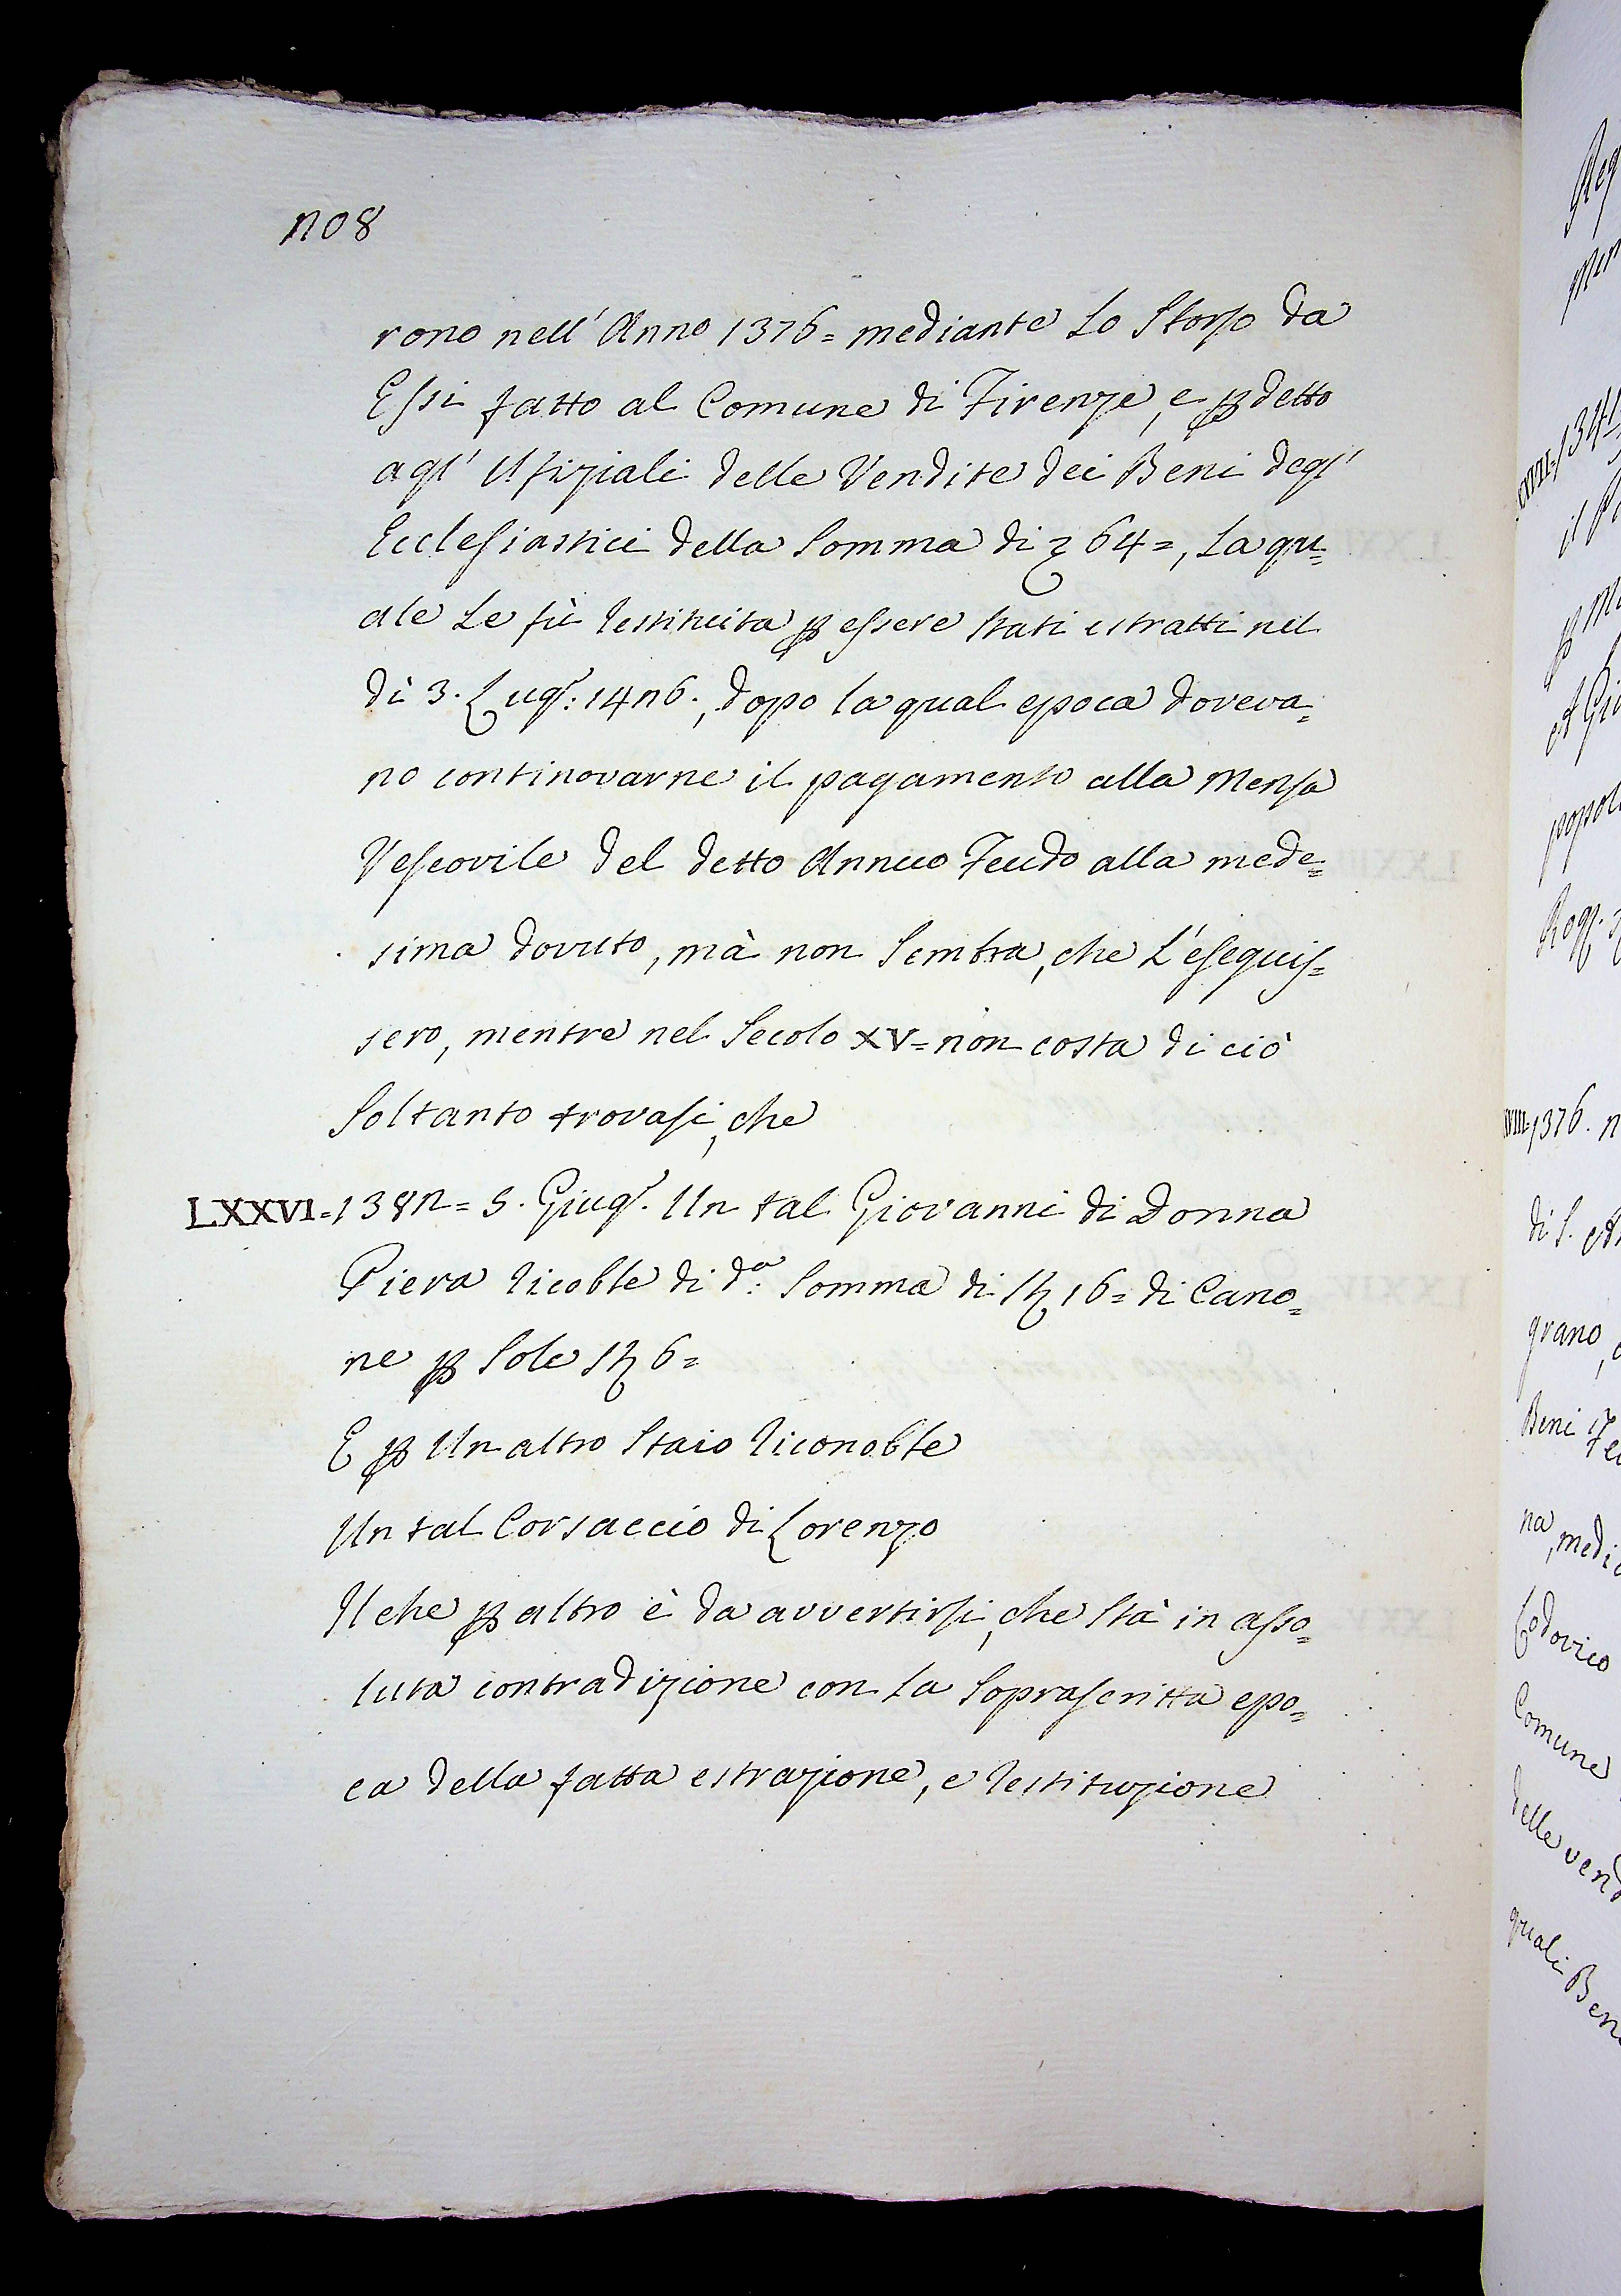 208
rono nell' Anno 1376= mediante Lo Storso da
Essi fatto al Comune di Firenze, e p detto
agl' Ufiziali delle Vendite dei Beni degl'
Ecclesiastici della Somma di 64=, La qu=
ale Le fù restituita p essere stati estratti nel
dì 3. Lugl: 1426., dopo la qual epoca doveva=
no continovarne il pagamento alla Mensa
Vescovile del detto Annuo Feudo alla mede=
sima dovuto, mà non Sembra, che L'eseguis=
sero, mentre nel Secolo XV= non costa di ciò
Soltanto trovasi, che
LXXVI=1382= 5. Giugʳ. Un tal Giovanni di Donna
Piera ricobbe di dᵃ: Somma di 16= di Cano=
ne p Sole 6=
E p Un altro Staio riconobbe
Un tal Corsaccio di Lorenzo
Il che p altro è da avvertirsi, che Stà in asso=
luta contradizione con La Soprascritta epo=
ca della fatta estrazione, e restituzione
1376. n
di S.
grano,
Beni
na, medi
Lodovico
Comune
delle vend
quali Beni